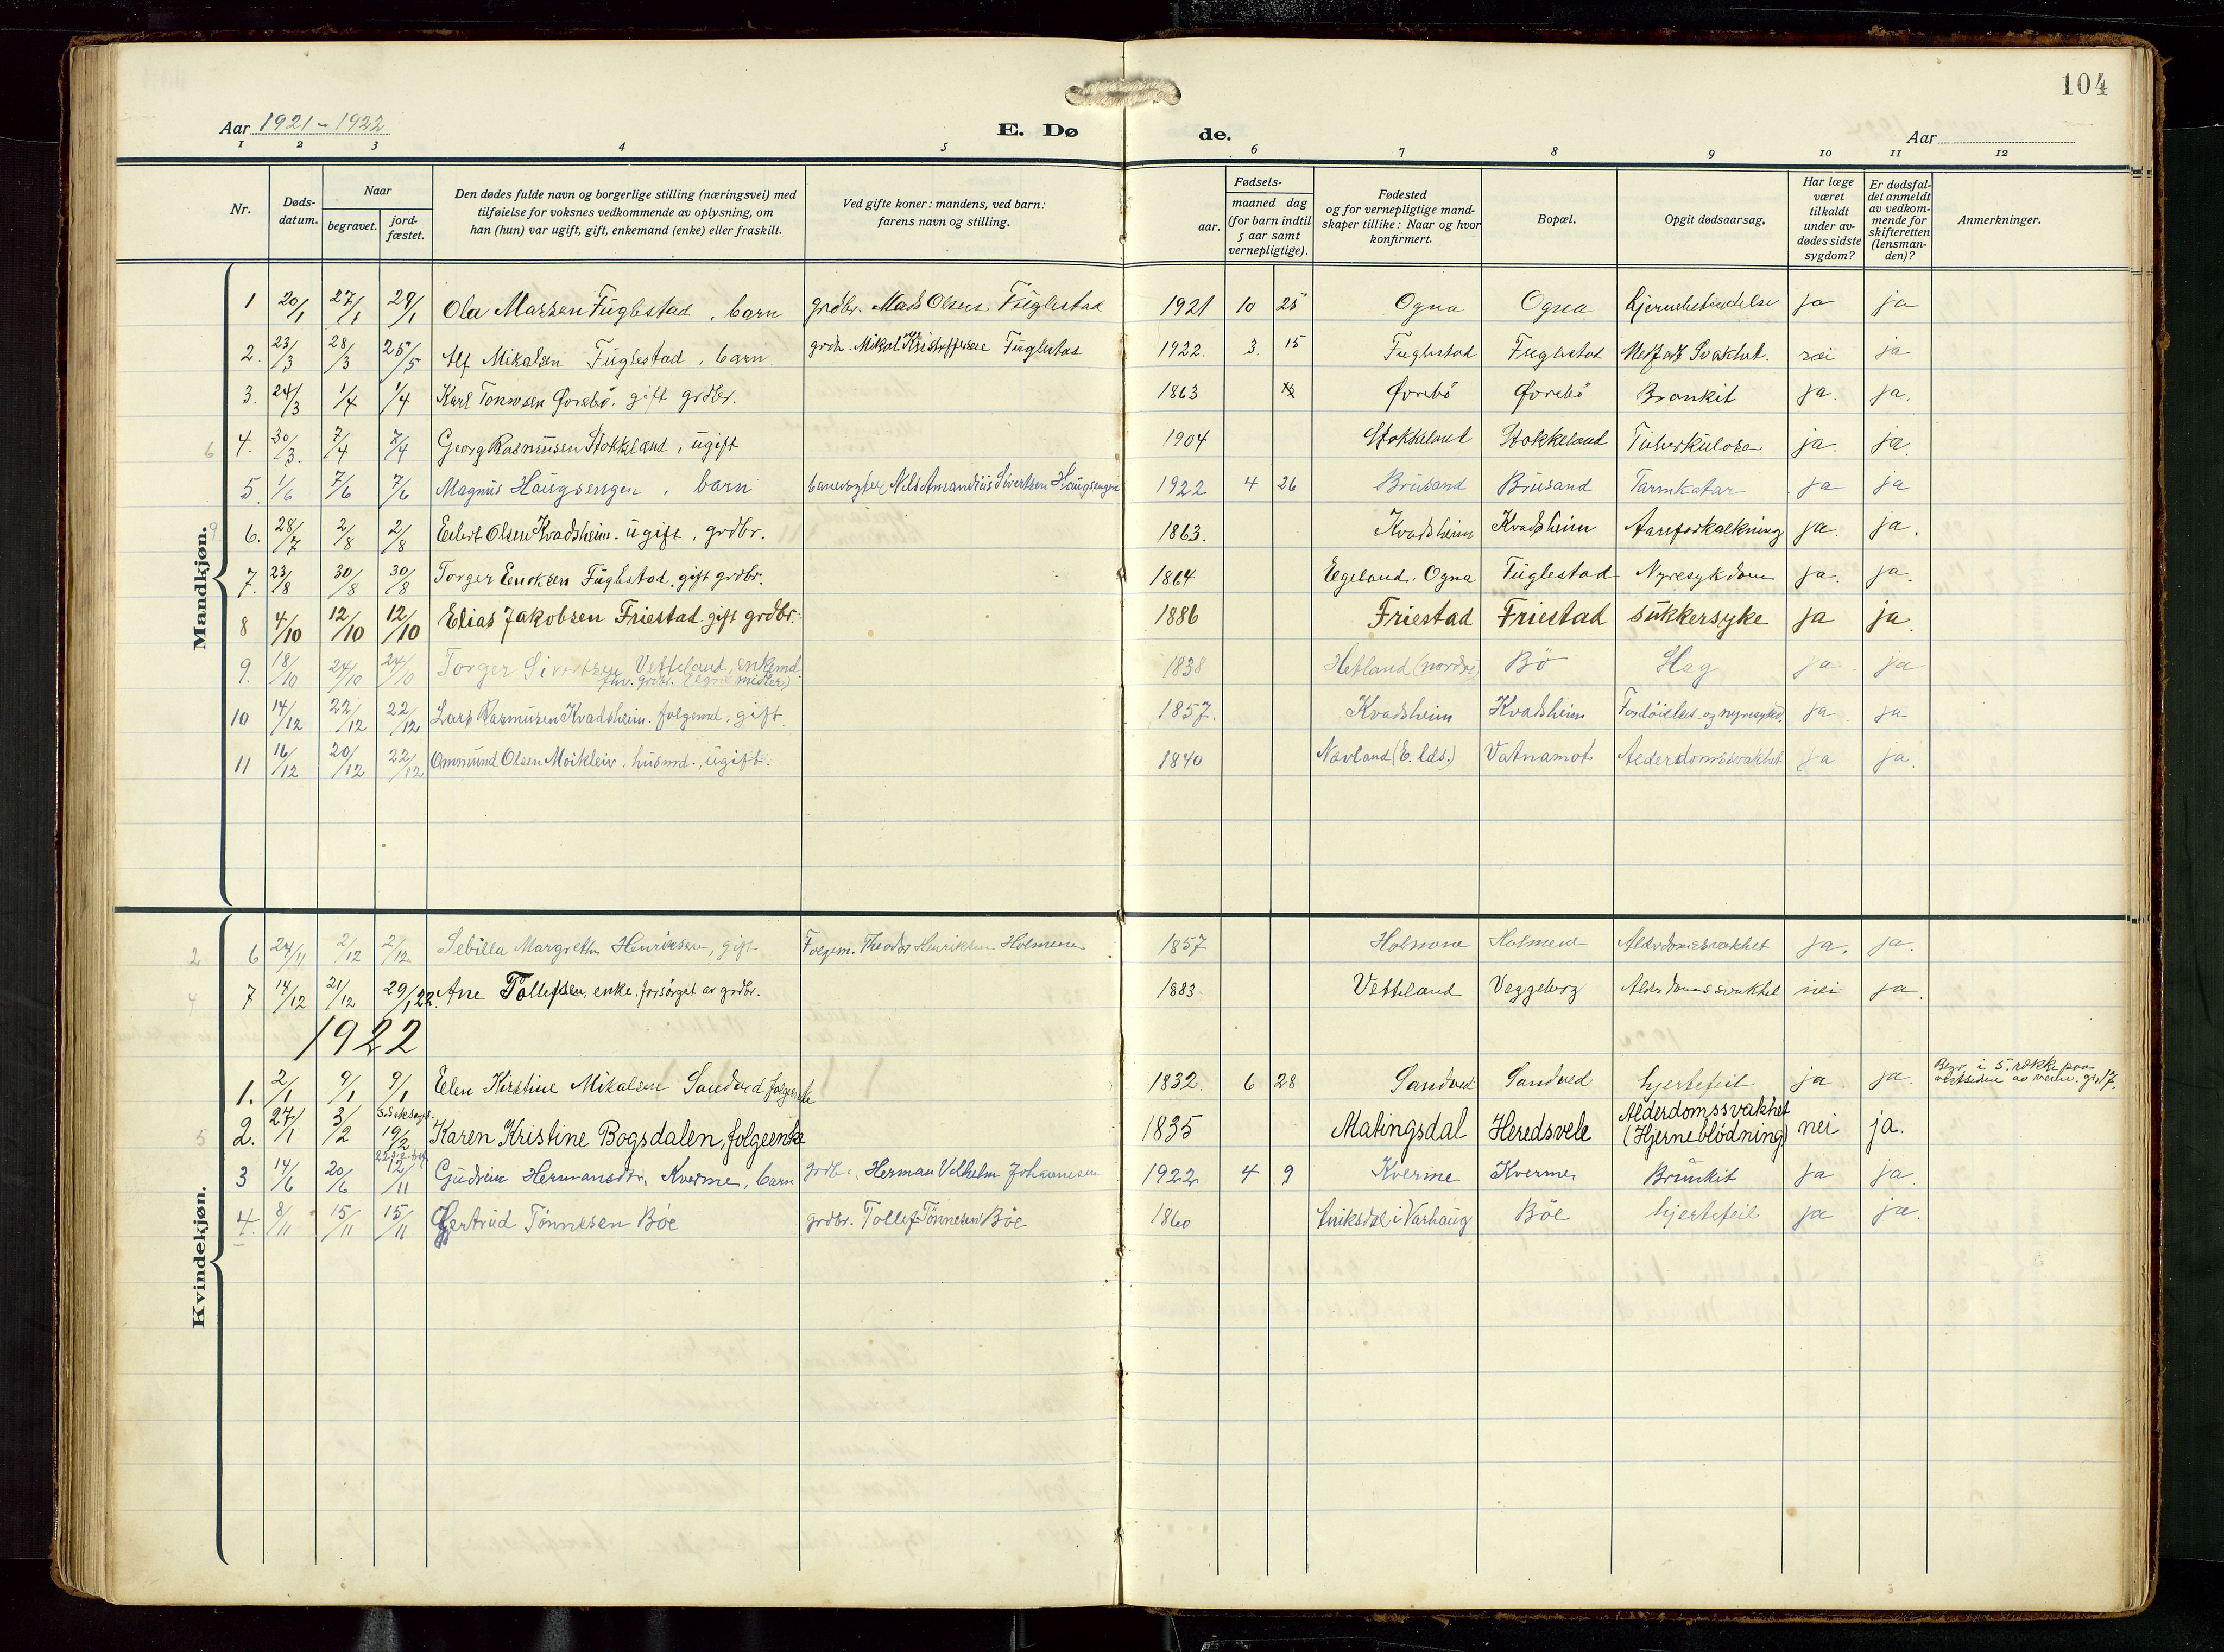 104
Aar 1921-1922
E. Dø
de.
Aar
1 2 3 4 5 6 7 8 9 10 11 12
Nr.
Døds-
datum.
Naar
begravet.
jord-
fæstet.
Den dødes fulde navn og borgerlige stilling (næringsvei) med
tilføielse for voksnes vedkommende av oplysning, om
han (hun) var ugift, gift, enkemand (enke) eller fraskilt.
Ved gifte koner: mandens, ved barn:
farens navn og stilling.
Fødsels-
aar.
maaned dag
(for barn indtil
5 aar samt
vernepligtige).
Fødested
og for vernepligtige mand-
skaper tillike: Naar og hvor
konfirmert.
Bopæl.
Opgit dødsaarsag.
Har læge
været
tilkaldt
under av-
dødes sidste
sygdom?
Er dødsfal-
det anmeldt
av vedkom-
mende for
skifteretten
(lensman-
den)?
Anmerkninger.
Mandkjøn.
1 20/1 27/1 29/1 Ola Madsen Fuglestad, barn grdbr. Mads Olsen Fuglestad 1921 10 25 Ogna Ogna hjernebetændelse ja ja
2. 23/3 28/3 25/5 Alf Mikalsen Fuglestad, barn grdbr. Mikal Kristoffersen Fuglestad 1922. 3. 15 Fuglestad Fuglestad Medfødt Svakhet. nei ja
3. 24/3 1/4 1/4 Karl Tonnesen Ørebø. gift grdbr. 1863 Ørebø Ørebø Bronkit ja. ja.
6 4. 30/3. 7/4 7/4 Georg Rasmussen Stokkeland, ugift 1904 Stokkeland Stokkeland Tuberkulose ja. ja.
5. 1/6 7/6 7/6 Magnus Haugsengen, barn Nils Amandius Sivertsen Haugsengen 1922 4 26 Brusand Brusand Tarmkatar ja ja
9 6. 28/7 2/8 2/8 Eilert Olsen Kvadsheim. ugift, grdbr. 1863. Kvadsheim Kvadsheim Aareforkalkning ja. ja.
7. 23/8 30/8 30/8 Torger Enoksen Fuglestad, gift grdbr. 1864 Egeland, Ogna Fuglestad Nyresykdom ja. ja.
8 4/10 12/10 12/10 Elias Jakobsen Friestad. gift grdbr. 1886 Friestad Friestad sukkersyke ja ja.
9. 18/10 24/10 24/10 Torger Sivertsen Vetteland, enkemd.
fhv. grdbr. (egne midler) 1838 Hetland (nordre) Bö Slag ja ja
10 14/12 22/12 22/12 Lars Rasmusen Kvadsheim. folgemd, gift. 1857. Kvadsheim Kvadsheim Fordöieles og nyresykd. ja ja
11 16/12 20/12 22/12 Ommund Olsen Moikleiv. husmd., ugift. 1840 Nævland (E. lds.) Vatnamot Aederdomssvakhet ja ja.
Kvindekjøn.
2 6 24/11 2/12 2/12 Sebilla Margrethe Henriksen, gift Folgem. Theodor Henriksen Holmene 1857 Holmene Holmene Alderdomssvakhet ja. ja.
4 7 14/12 21/12 29/1 22. Ane Tollefsen, enke. forsörget av grdbr. 1883 Vetteland Veggeberg Alderdomssvakhet nei ja.
1922
1. 2/1 9/1 9/1 Elen Kirstine Mikalsen Sandved folgeenke 1832. 6 28 Sandved Sandved hjertefeil ja ja.
i 5. rekke paa
5 2. 27/1 3/2 19/2 Karen Kristine Bogsdalen, folgeenke 1835 Matingsdal Heredsvele Alderdomssvakhet
(Hjerneblödning) nei ja.
3 14/6 20/6 12/11 Gudrun Hermansdtr. Kverme, barn grdbr. Herman Vilhelm Johannesen 1922 4 9 Kverme Kverme Brunkit ja ja
4. 8/11 15/11 15/11 Gjertrud Tönnesen Böe grdbr. Tollef Tönnesen Böe 1860 Aniksdal i Varhaug Böe hjertefeil ja ja.